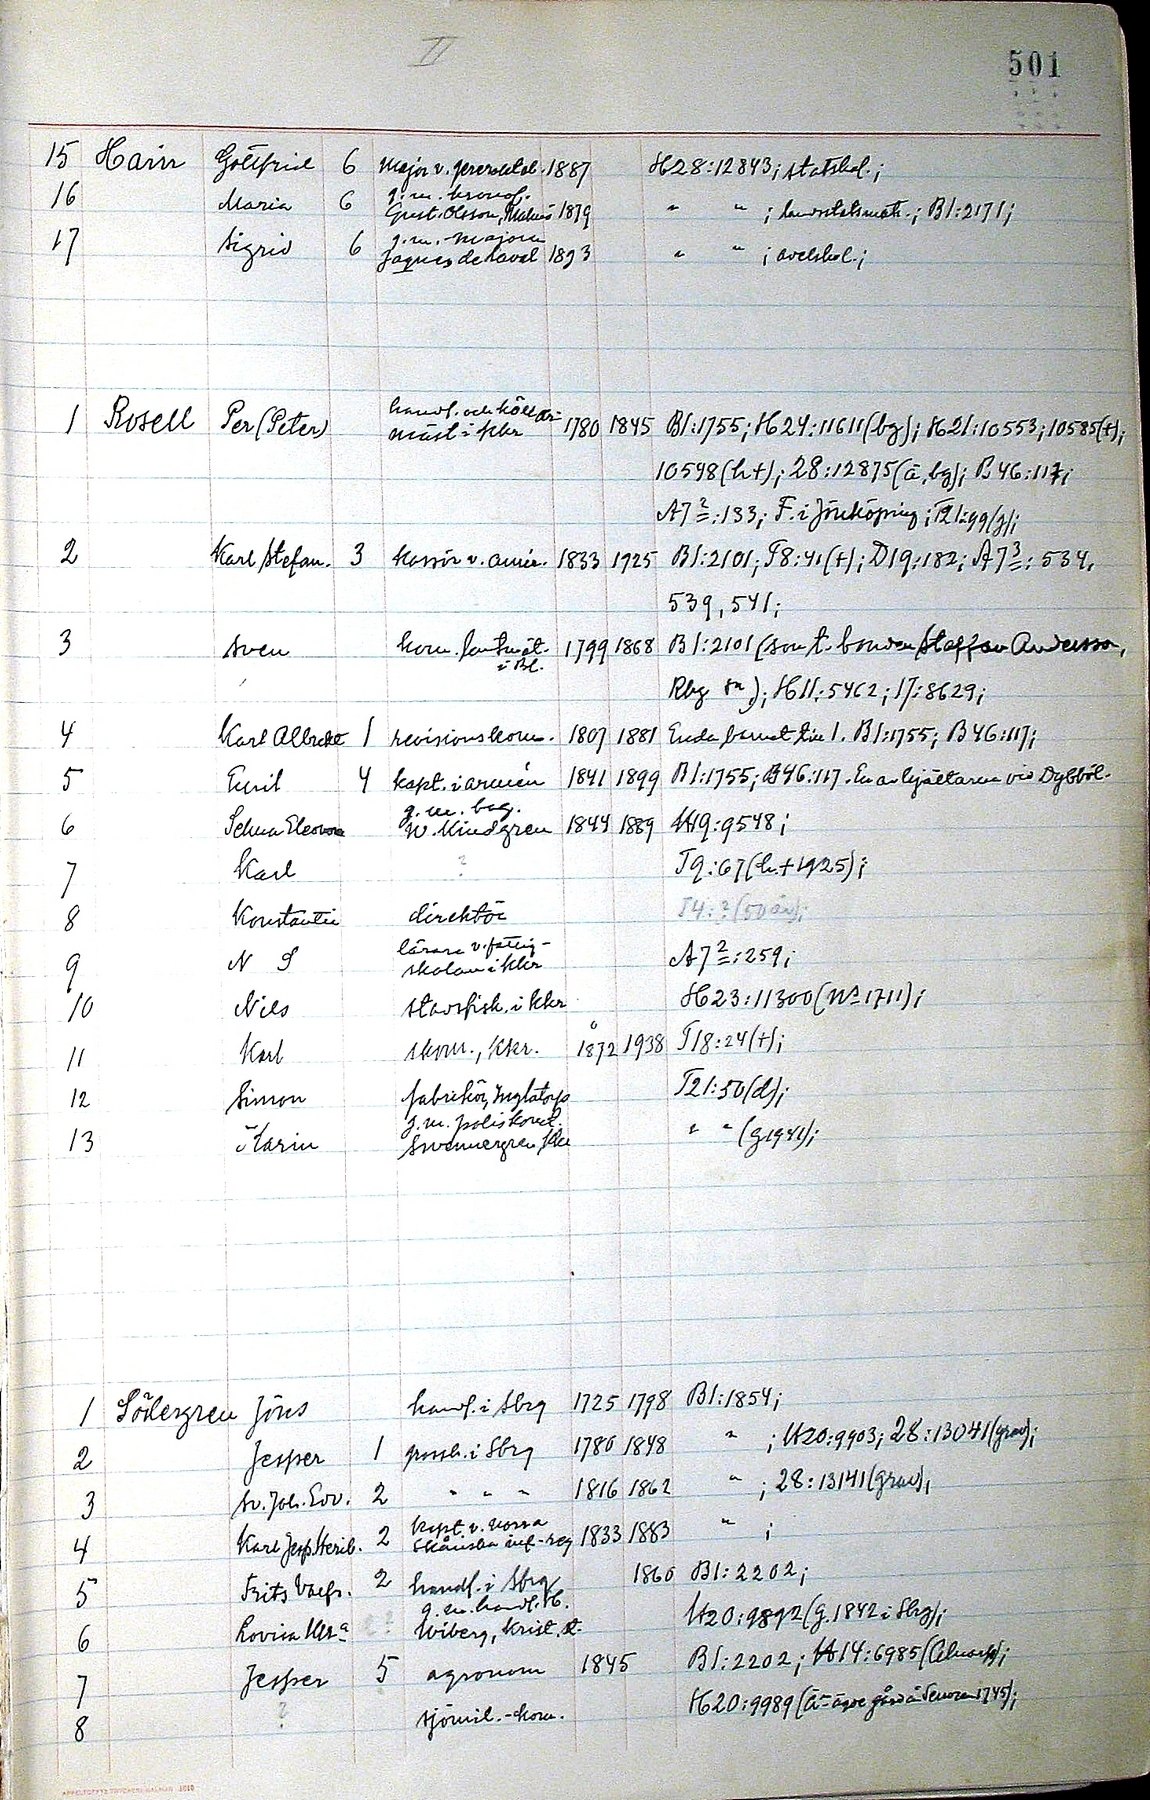 II
501
15 Hain Gottfrid 6 major v. generalstab. 1887 H28:12843; statskal.;
16 Maria 6 g.m. kronof. Gust. Olsson, 1879 " " ; landsstatsmatr.; B1:2171;
17 Sigrid 6 g.m. majoren Jaques de Laval 1893 " " ; adelskal.;
1 Rosell Per (Peter) handl. och källar-
mäst. i Kkr 1780 1845 B1:1755; H24:11611(bg); H21:10553; 10585(+);
10598(h+); 28:12875(ä, bg); B46:117;
A7²:133; F. i Jönköping; T21:99(g);
2 Karl Stefan. 3 kassör v. amir. 1833 1925 B1:2101; T8:41(+); D19:182; A7³: 534,
539, 541;
3 Sven kom. lantmät. i Bl. 1799 1868 B1:2101 (son t. bonden Staffan Andersson,
Rbg sn); H11:5462; 17:8629;
4 Karl Albrekt 1 revisionskom. 1807 1881 Enda barnet till 1. B1:1755; B46:117;
5 Emil 4 kapt. i armén 1841 1899 B1:1755; B46:117. En av hjältarna vid Dybböl.
6 Selma Eleonora g.m. bag. W. Kindgren 1844 1889 H19:9548;
7 Karl ? T9:67(h.+1925);
8 Konstantin direktör T4:?(50 år);
9 N S lärare v. fattig-
skolan i Kkr A7²:259;
10 Nils stadsfisk. i Kkr H23:11300(No 1711);
11 Karl skom., Kkr. 1872 1938 T18:24(+);
12 Simon fabrikör, Inglatorp T21:50(d);
13 Karin g.m. poliskonst. Svennergren, Kkr " " (g1941);
1 Södergren Jöns handl. i Sbrg 1725 1798 B1:1854;
2 Jesper 1 grossh. i Sbrg 1780 1848 " ; H20:9903; 28:13041(grav);
3 Sv. Joh. Edv. 2 " " " 1816 1862 " ; 28:13141(grav);
4 Karl Jesp. Herib. 2 kapt. v. norra
skånska inf-reg 1833 1883 " ;
5 Frits 2 handl. i Sbrg 1860 B1:2202;
6 Lovisa g.m. handl. Wiberg, Krist.st. H20:9892(g. 1842 i Sbrg);
7 Jesper 5 agronom 1845 B1:2202; H14:6985
8 ? sjömil.-kom. H20:9989(ä-ägde gård å 1745);